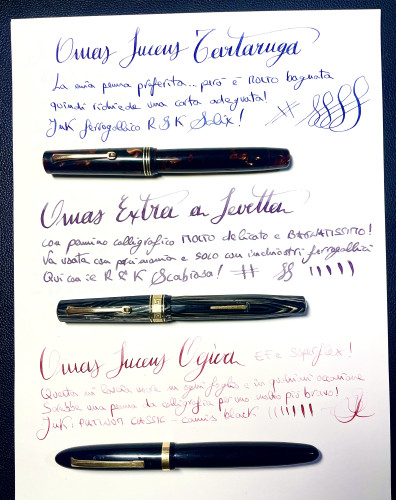 Omas Lucens Tartaruga
La mia penna preferita... però è MOLTO bagnata
quindi richiede una carta adeguata!
Ink ferrogallico R & K Salix!
Omas Extra a levetta
con pennino calligrafico MOLTO delicato e BAGNATISSIMO!
Va usata con parsimonia e solo con inchiostri ferrogallici
Qui con il R & K Scabiosa!
Omas Lucens Ogiva EF e superflex!
Questa mi lascia in ogni foglio e in
Sarebbe una penna da calligrafia per uno molto più bravo!
Ink: PLATINUM CLASSIC - cassis black